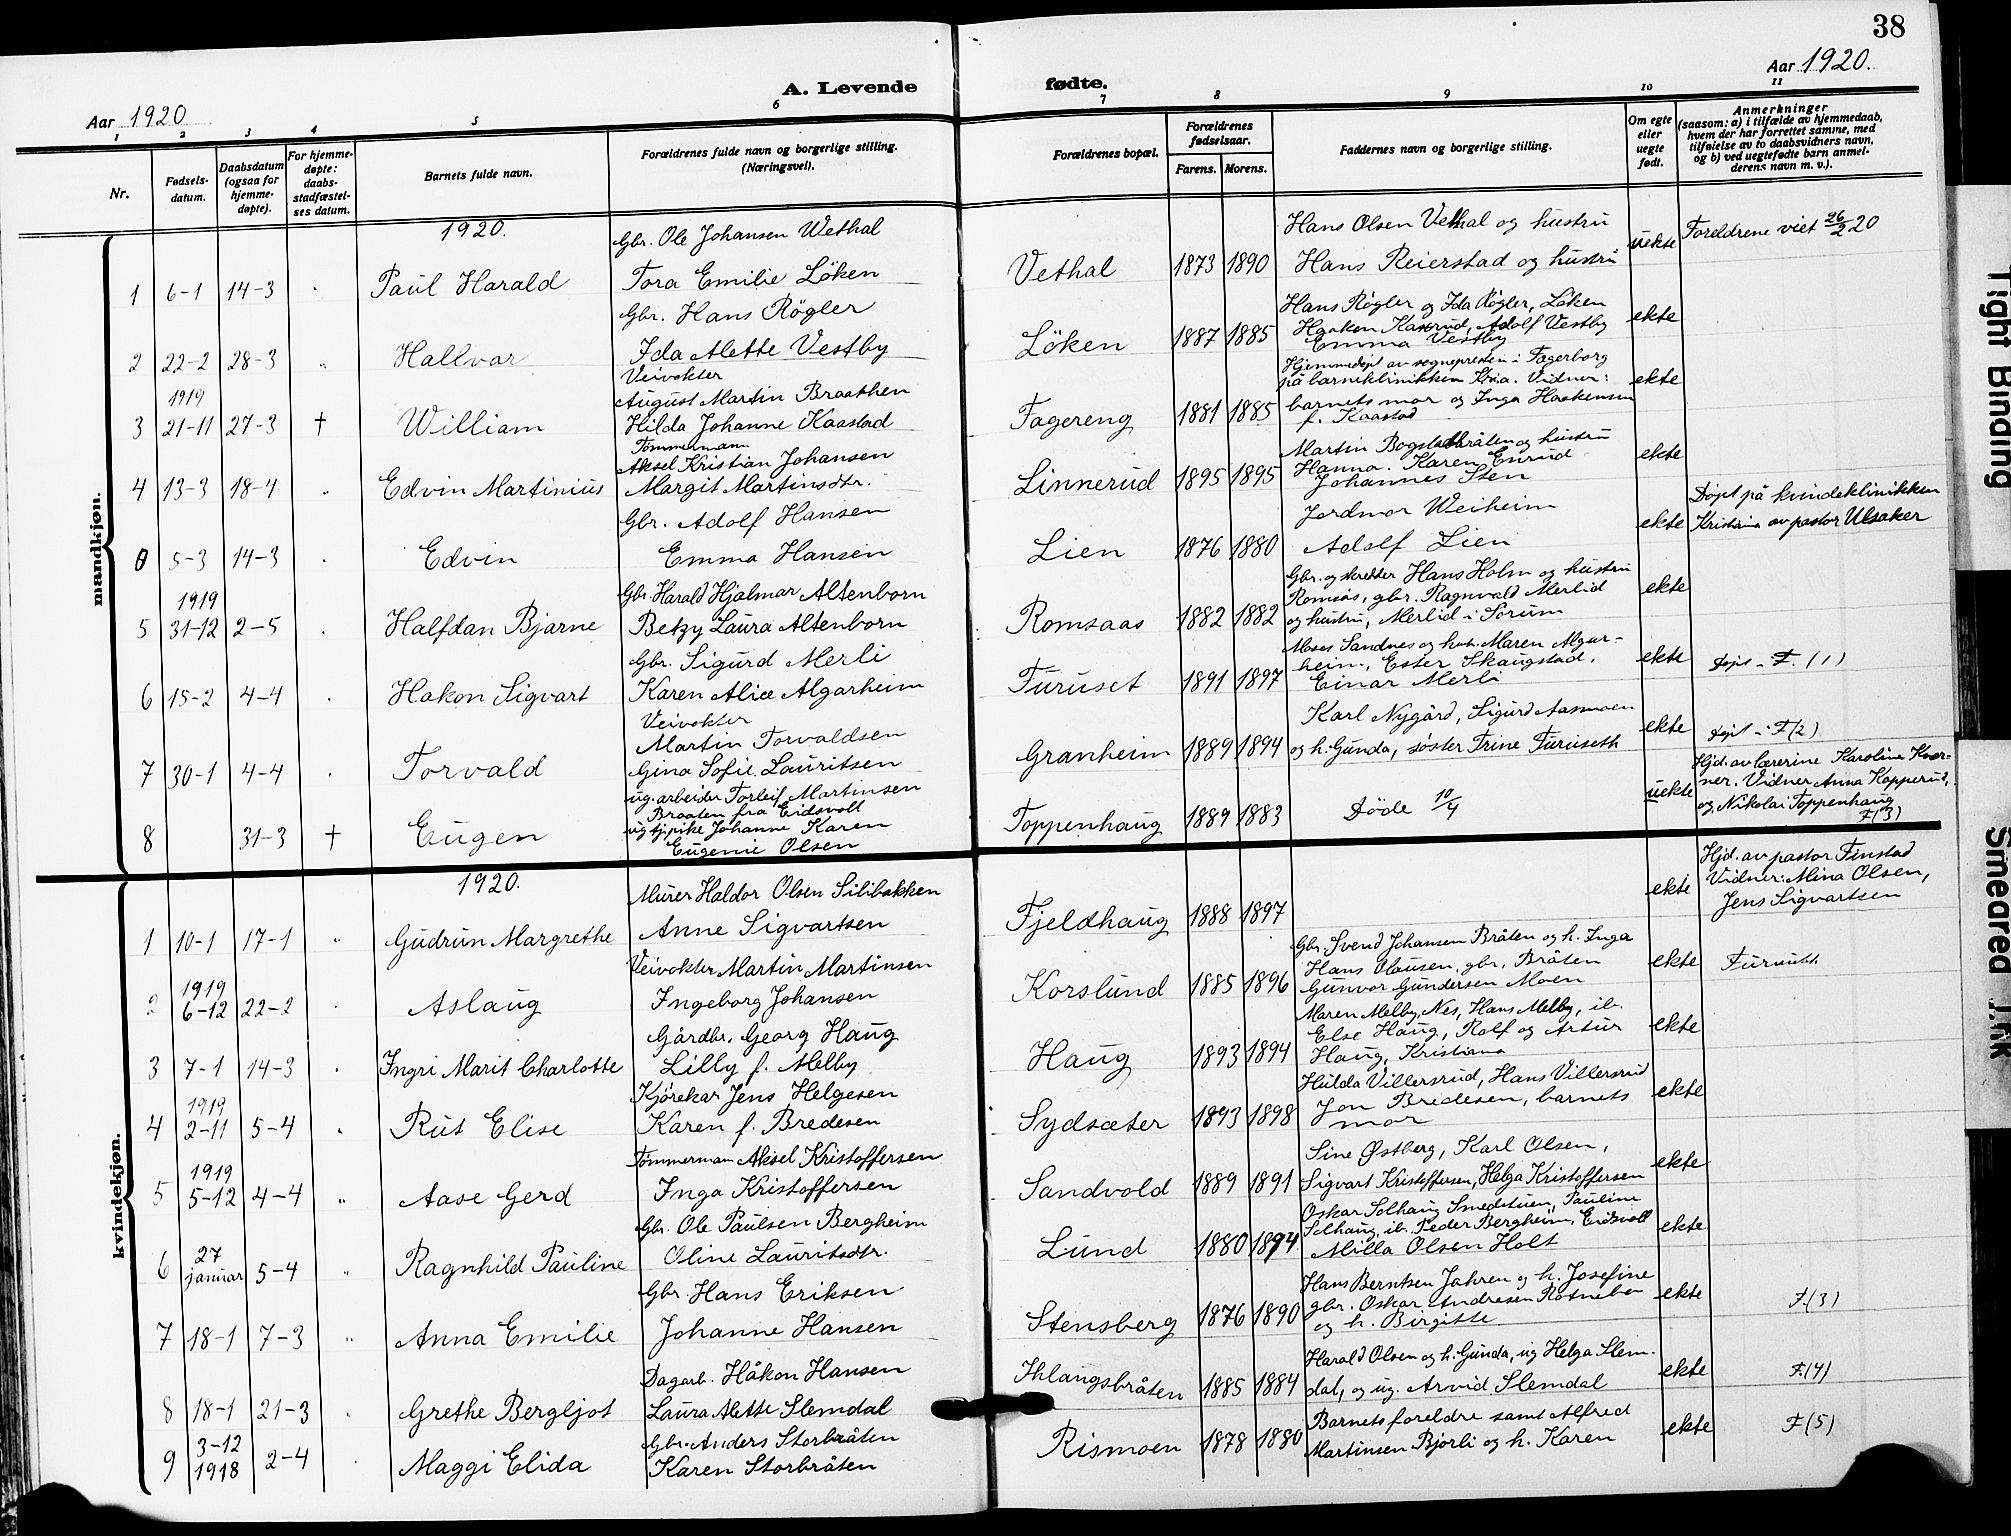 38
Aar 1920
A. Levende fødte.
Aar 1920.
1 2 3 4 5 6 7 8 9 10 11
Nr.
Fødselsdatum.
Daabsdatum (ogsaa for hjemmedøpte).
For hjemmedøpte: daabsstadfæstelses datum.
Barnets fulde navn.
Forældrenes fulde navn og borgerlige stilling. (Næringsvei).
Forældrenes bopæl.
Forældrenes fødselsaar.
Farens. Morens.
Faddernes navn og borgerlige stilling.
Om egte eller uegte født.
Anmerkninger (saasom: a) i tilfælde av hjemmedaab, hvem der har forrettet samme, med tilføielse av to daabsvidners navn, og b) ved uegtefødte barn anmelderens navn m. v.).
mandkjøn.
1920.
1 6-1 14-3 . Paul Harald
Gbr. Ole Johansen Wethal
Tora Emilie Löken
Vethal 1873 1890
Hans Olsen Vethal og hustru
Hans Reierstad og hustru
uekte
Foreldrene viet 26/2 20
2 22-2 28-3 " Hallvar
Gbr. Hans Rögler
Ida Alette Vestby
Löken 1887 1885
Hans Rögler og Ida Rögler, Löken
Haaken Kaxrud, Adolf Vestby
Emma Vestby
ekte
3 1919 21-11 27-3 † William
Veivokter
August Martin Braathen
Hilda Johanne Kaastad
Fagereng 1881 1885
Hjemmedöpt av sognepresten i Fagerborg
på barneklinikken Kr.a. Vidner:
barnets mor og Inga Haakensen
f. Kaastad
ekte
4 13-3 18-4 " Edvin Martinius
Tömmermann
Aksel Kristian Johansen
Margit Martinsdtr.
Linnerud 1895 1895
Martin Bogstadbråten og hustru
Hanna. Karen Enrud
Johannes Sten
ekte
0 5-3 14-3 . Edvin
Gbr. Adolf Hansen
Emma Hansen
Lien 1876 1880
Jordmor Weiheim
Adolf Lien
ekte
Döpt på kvindeklinikken
Kristiania av pastor Ulsaker
5 1919 31-12 2-5 . Halfdan Bjarne
Gbr. Harald Hjalmar Altenborn
Betzy Laura Altenborn
Romsaas 1882 1882
Gbr. og skredder Hans Holm og hustru
Romsås, gbr. Ragnvald Merlid
og hustru, Merlid i Sorum
ekte
6 15-2 4-4 . Hakon Sigvart
Gbr. Sigurd Merli
Karen Alice Algarheim
Furuset 1891 1897
Moses Sandnes og hust. Maren Algar-
heim, Ester Skaugstad,
Einar Merli
ekte
Döpt i F. (1)
7 30-1 4-4 . Torvald
Veivokter
Martin Torvaldsen
Gina Sofie Lauritsen
Granheim 1889 1894
Karl Nygård, Sigurd Aasmoen
og h. Gunda, söster Trine Furuseth
ekte
Döpt i F (2)
8 31-3 † Eugen
ug. arbeider Torleif Martinsen
Braaten fra Eidsvoll
ug tjpike Johanne Karen
Eugenie Olsen
Toppenhaug 1889 1883
Döde 10/4
uekte
Hjd. av lærerine Karoline Kvær-
ner. Vidner Anna Kopperud,
og Nikolai Toppenhaug
F (3)
kvindekjøn.
1920.
1 10-1 17-1 " Gudrun Margrethe
Murer Haldor Olsen Silibakken
Anne Sigvartsen
Fjeldhaug 1888 1897
ekte
Hjd. av pastor Finstad
Vidner: Mina Olsen,
Jens Sigvartsen
2 1919 6-12 22-2 . Aslaug
Veivokter Martin Martinsen
Ingeborg Johansen
Korslund 1885 1896
Gbr. Svend Johansen Bråten og h. Inga
Hans Clausen, gbr. Bråten
Gunvor Gundersen Moen
ekte
Furuset.
3 7-1 14-3 . Ingri Marit Charlotte
Gårdbr. Georg Haug
Lilly f. Melby
Haug 1893 1894
Maren Melby, Nes, Hans Melby, ib.
Else Haug, Rolf og Artur
Haug, Kristiania
ekte
4 1919 2-11 5-4 . Rut Elise
Kjörekar Jens Helgesen
Karen f. Bredesen
Sydsæter 1893 1898
Hulda Villersrud, Hans Villersrud
Jon Bredesen, barnets
mor
ekte
5 1919 5-12 4-4 " Aase Gerd
Tömmerman Aksel Kristoffersen
Inga Kristoffersen
Sandvold 1889 1891
Sine Østberg, Karl Olsen,
Sigvart Kristoffersen, Helga Kristoffersen
ekte
6 27 januar 5-4 " Ragnhild Pauline
Gbr. Ole Paulsen Bergheim
Oline Lauritsdtr.
Lund 1880 1894
Oskar Solhaug Smedstuen, Pauline
Solhaug, ib. Peder Bergheim, Eidsvoll
Milla Olsen Holt
ekte
7 18-1 7-3 " Anna Emilie
Gbr. Hans Eriksen
Johanne Hansen
Stensberg 1876 1890
Hans Berntsen Jahren og h. Josefine
gbr. Oskar Andresen Rotnebæ
og h. Birgitte
ekte
F. (3)
8 18-1 21-3 . Grethe Bergljot
Dagarb. Håkon Hansen
Laura Alette Slemdal
Ihlangsbråten 1885 1884
Harald Olsen og h. Gunda, ug Helga Slem-
dal, og ug. Arvid Slemdal
ekte
F. (4)
9 3-12 1918 2-4 . Maggi Elida
Gbr. Anders Storbråten
Karen Storbråten
Rismoen 1878 1880
Barnets foreldre samt Alfred
Martinsen Bjorli og h. Karen
ekte
F (5)
Tight Binding
Smeared Ink